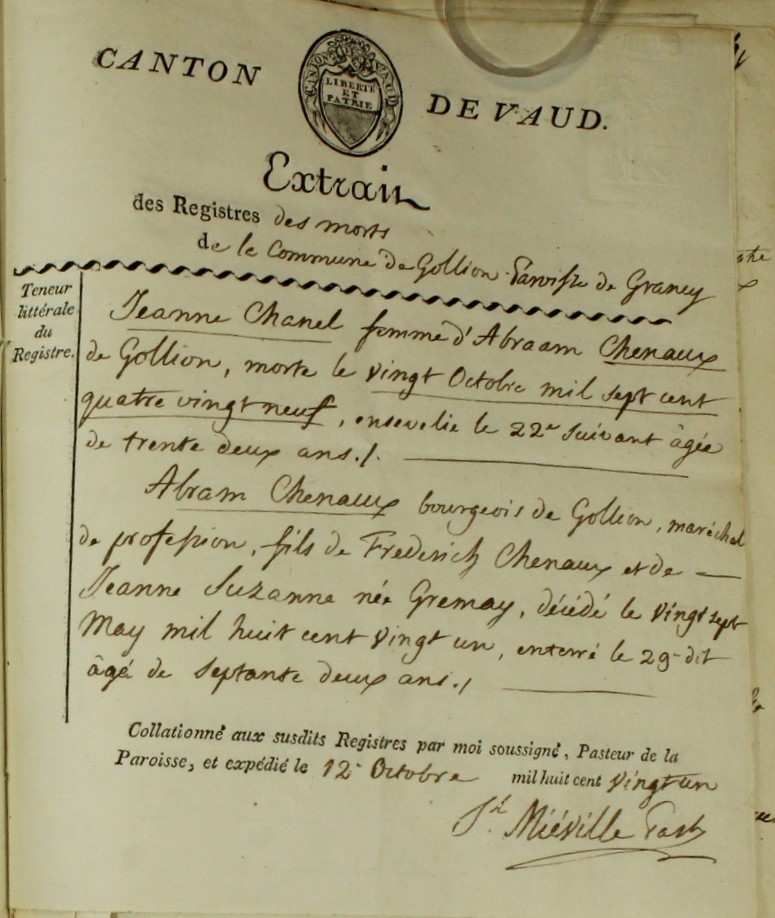 CANTON DE VAUD.
CANTON DE VAUD
LIBERTÉ
ET
PATRIE
Extrait
des Registres des morts
de la Commune de Gollion Paroisse de Grancy
Teneur
littérale
du
Registre.
Jeanne Chanel femme d'Abraam Chenaux
de Gollion, morte le vingt Octobre mil sept cent
quatre vingt neuf, ensevelie le 22e suivant âgée
de trente deux ans./.
Abram Chenaux bourgeois de Gollion, maréchal
de profession, fils de Frederich Chenaux et de
Jeanne Suzanne née Gremay, décédé le vingt sept
May mil huit cent vingt un, enterré le 29 dit
âgé de septante deux ans./
Collationné aux susdits Registres par moi soussigné, Pasteur de la
Paroisse, et expédié le 12e Octobre mil huit cent vingt un
Miéville Past